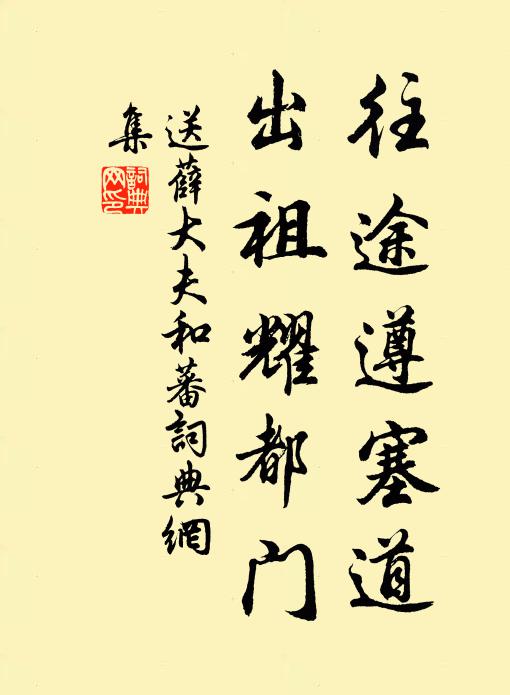 往途遵塞道
出祖耀都门
送薛大夫和蕃詞典網
集
詞典
网印